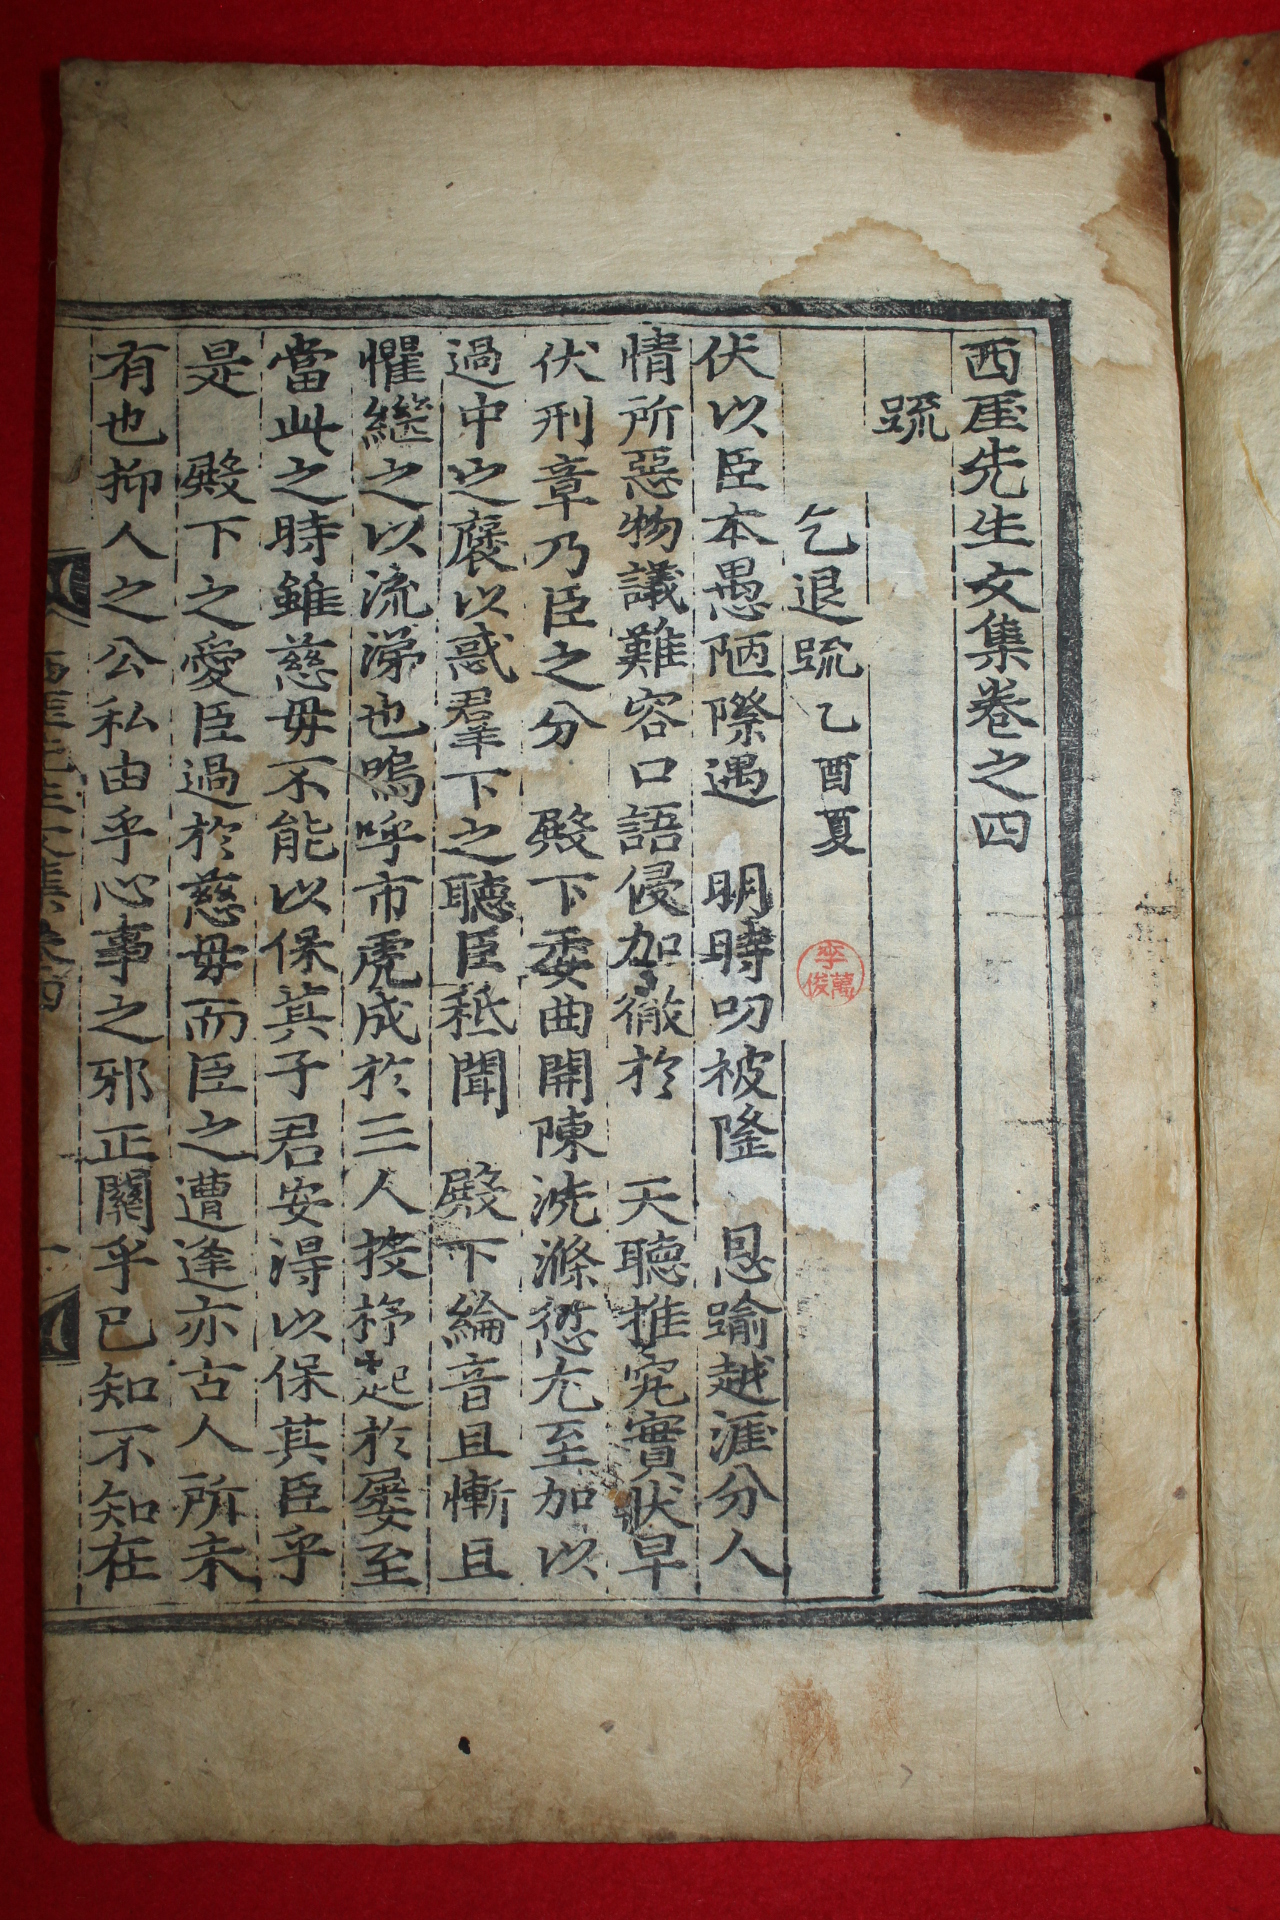 西厓先生文集卷之四
疏
乞退疏 乙酉夏
伏以臣本愚陋際遇 明時叨被隆 恩踰越涯分人
情所惡物議難容口語侵加徹於 天聽推究實狀早
伏刑章乃臣之分 殿下委曲開陳洗滌愆尤至加以
過中之褒以惑羣下之聽臣秪聞 殿下綸音且慚且
懼繼之以流涕也嗚呼市虎成於三人投杼起於屢至
當此之時雖慈母不能以保其子君安得以保其臣乎
是 殿下之愛臣過於慈母而臣之遭逢亦古人所未
有也抑人之公私由乎心事之邪正關乎已知不知在
西厓先生文集 卷四
一
李萬俊